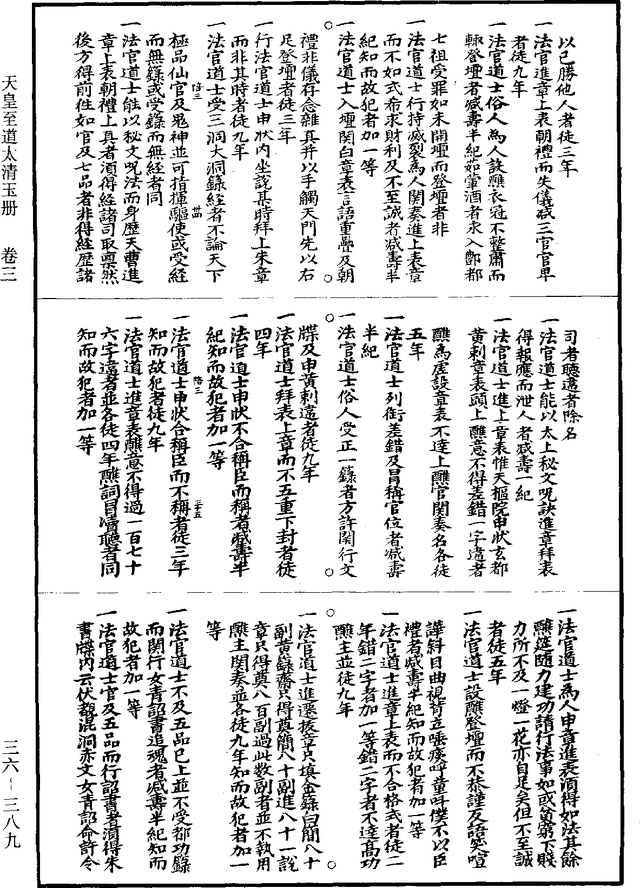 以已勝他人者徒三年
一法官進章上表朝禮而失儀減三官官早
者徒九年
一法官道士俗人為人設醮衣冠不整肅而
輒登壇者減壽半紀茹葷酒者永入酆都
七祖受罪如未開壇而登壇者非
一法官道士行持滅裂為人関奏進上表章
而不如式希求財利及不至誠者減壽半
紀知而故犯者加一等
一法官道士入壇関白章表言語重疊及朝
禮非儀存念雜真并以手觸天門先以右
足登壇者徒三年
一行法官道士申狀内坐説某時拜上朱章
而非其時者徒九年
一法官道士受三洞大洞籙經者不論天下
極品仙官及鬼神並可指揮驅使或受經
而無籙或受籙而無經者同
一法官道士能以秘文呪法而身歷天曹進
章上表朝禮上真者須得經諸司取禀然
後方得前往如官及七品者非得經歷諸
司者聽違者除名
一法官道士能以太上秘文呪訣進章拜表
得報應而泄人者減壽一紀
一法官道士進上章表惟天樞院申狀玄都
黄刺章表頭上醮意不得差錯一字違者
醮為虚設章表不達上醮官関奏名各徒
五年
一法官道士列銜差錯及冒稱官位者減壽
半紀
一法官道士俗人受正一籙者方許関行文
牒及申黄刺違者徒九年
一法官道士拜表上章而不五重下封者徒
四年
一法官道士申狀不合稱臣而稱者減壽半
紀知而故犯者加一等
一法官道士申狀合稱臣而不稱者徒三年
知而故犯者徒九年
一法官道士進章表醮意不得過一百七十
六字違者並各徒四年醮詞冒瀆聽者同
知而故犯者加一等
一法官道士為人申章進表須得如法其餘
醮筵隨力建功請行法事如或貧窮下賤
力所不及一燈一花亦自足矣但不至誠
者徒五年
一法官道士設醮登壇而不恭謹及語笑喧
譁斜目曲視背立唾痰呼童叫僕不以臣
禮者減壽半紀知而故犯者加一等
一法官道士進章上表而不合格式者徒二
年錯二字者加一等錯二字者不達高功
醮主並徒九年
一法官道士進遷拔章只填金籙白簡八十
副黄籙齋只得奠簡八十副進八十一説
章只得奠八百副過此數副者並不執用
醮主関奏並各徒九年知而故犯者加一
等
一法官道士不及五品已上並不受都功籙
而関行女青詔書追魂者減壽半紀知而
故犯者加一等
一法官道士官及五品而行詔書者須得朱
書牒内云伏覩混洞赤文女青詔命許令
天皇至道太清玉册　卷三
三六-三八九